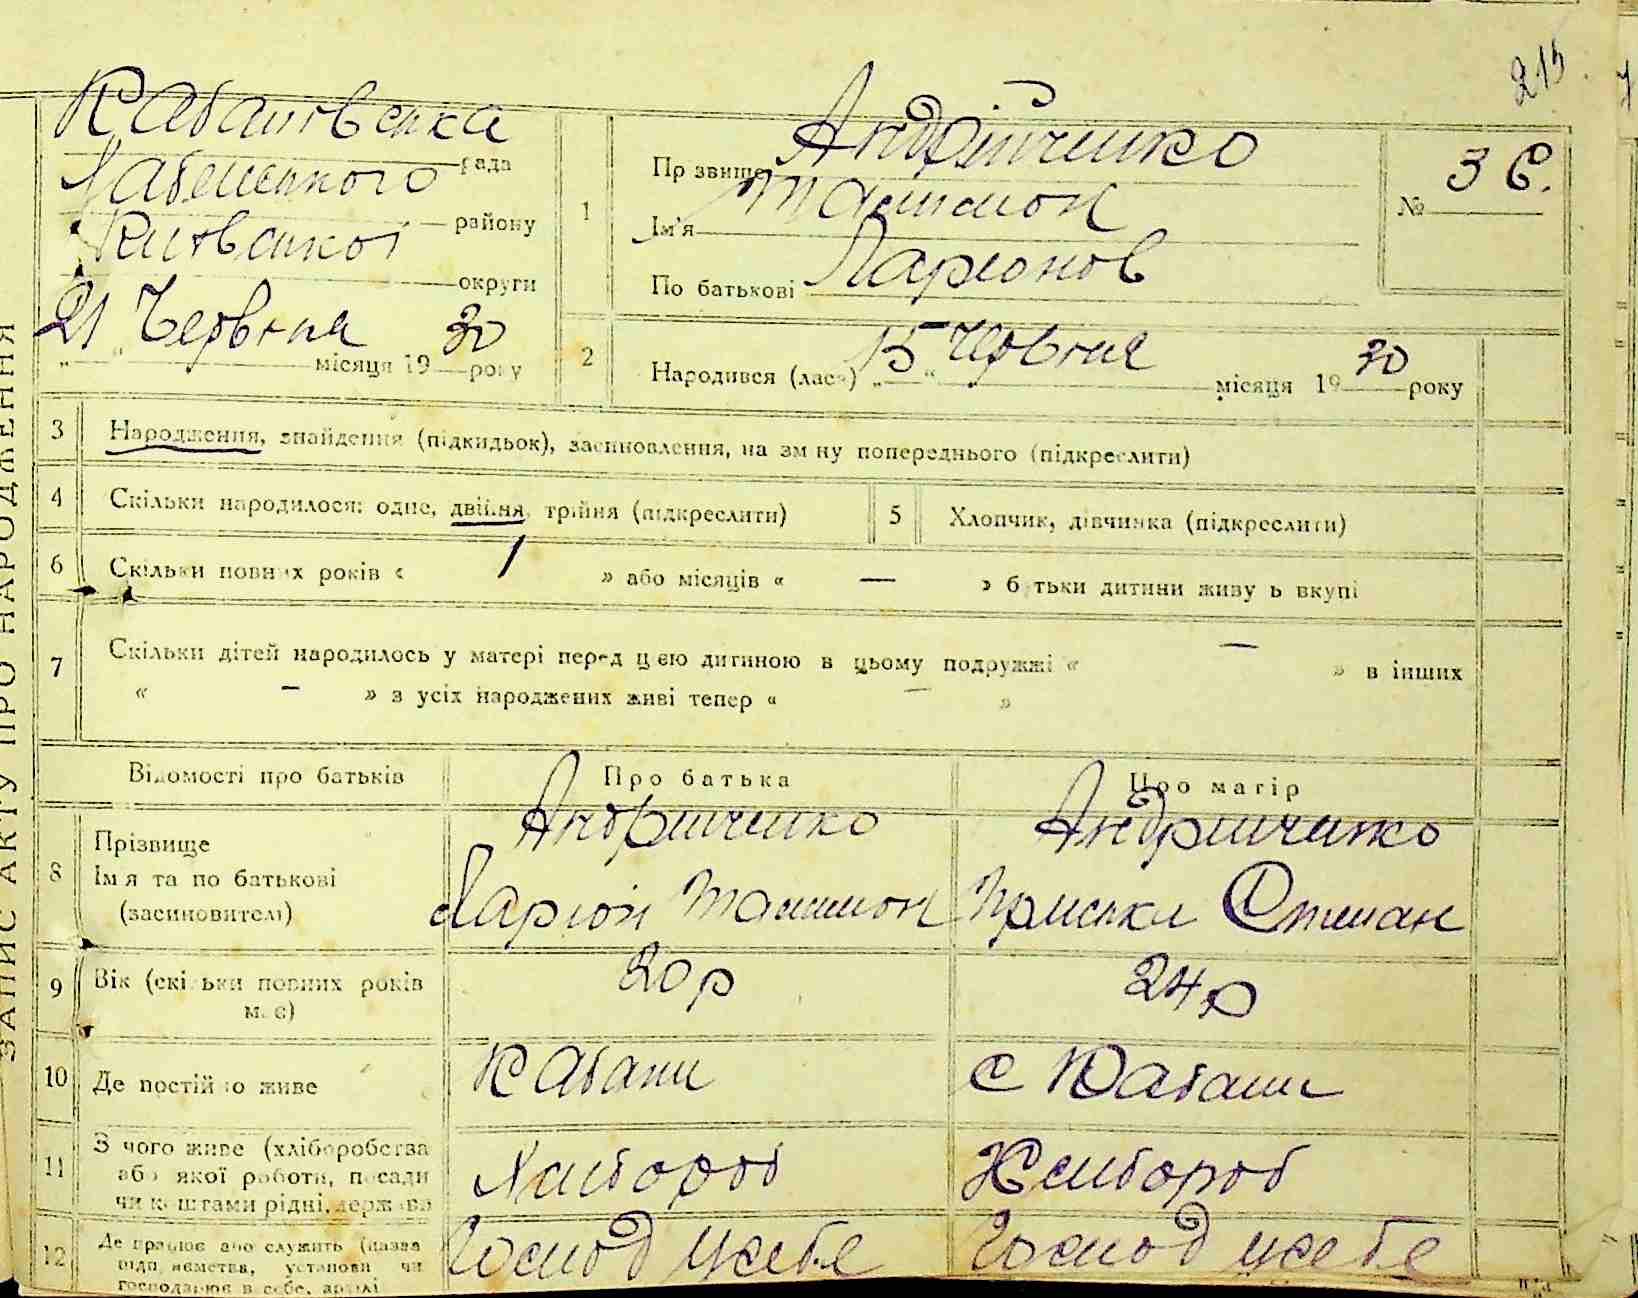 215
ЗАПИС АКТУ ПРО НАРОДЖЕННЯ
Кабанівська
рада
району
Київської
округи
21 Червня місяця 1930 року
1
Прізвище Андрійченко
Ім'я
По батькові Ларіонов
№ 36.
2
Народився (лася) „15“ Червня місяця 1930 року
3 Народження, знайдення (підкидьок), засиновлення, на зміну попереднього (підкреслити)
4 Скільки народилося: одне, двійня, трійня (підкреслити)
5 Хлопчик, дівчинка (підкреслити)
6 Скільки повних років « 1 » або місяців « — » батьки дитини живуть вкупі
7 Скільки дітей народилось у матері перед цією дитиною в цьому подружжі « — » в інших
« — » з усіх народжених живі тепер « — »
Відомості про батьків Про батька Про матір
8 Прізвище Андрийченко Андрийченко
Ім'я та по батькові Ларіон
(засиновителі)
9 Вік (скільки повних років 20 р 24 р
має)
10 Де постійно живе Кабани с Кабани
11 З чого живе (хліборобства
або якої роботи, посади Хлибороб Хлибороб
чи коштами рідні, держави
12 Де працює або служить (назва
підприємства, установи чи
господарює в себе, артілі
Господ у себе Господ у себе